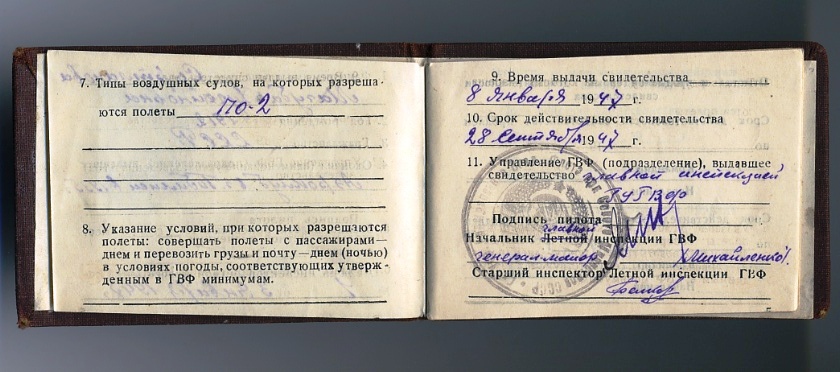 7. Типы воздушных судов, на которых разреша-
ются полеты ПО-2
8. Указание условий, при которых разрешаются
полеты: совершать полеты с пассажирами—
днем и перевозить грузы и почту—днем (ночью)
в условиях погоды, соответствующих утверж-
денным в ГВФ минимумам.
9. Время выдачи свидетельства
8 Января 1947 г.
10. Срок действительности свидетельства
28 Сентября 1947 г.
11. Управление ГВФ (подразделение), выдавшее
свидетельство главной инспекцией
ГУГВФ
Подпись пилота
главной
Начальник Летной инспекции ГВФ
генерал-майор /Михайленко/
Старший инспектор Летной инспекции ГВФ